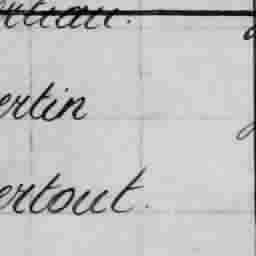 ertin
ertout.